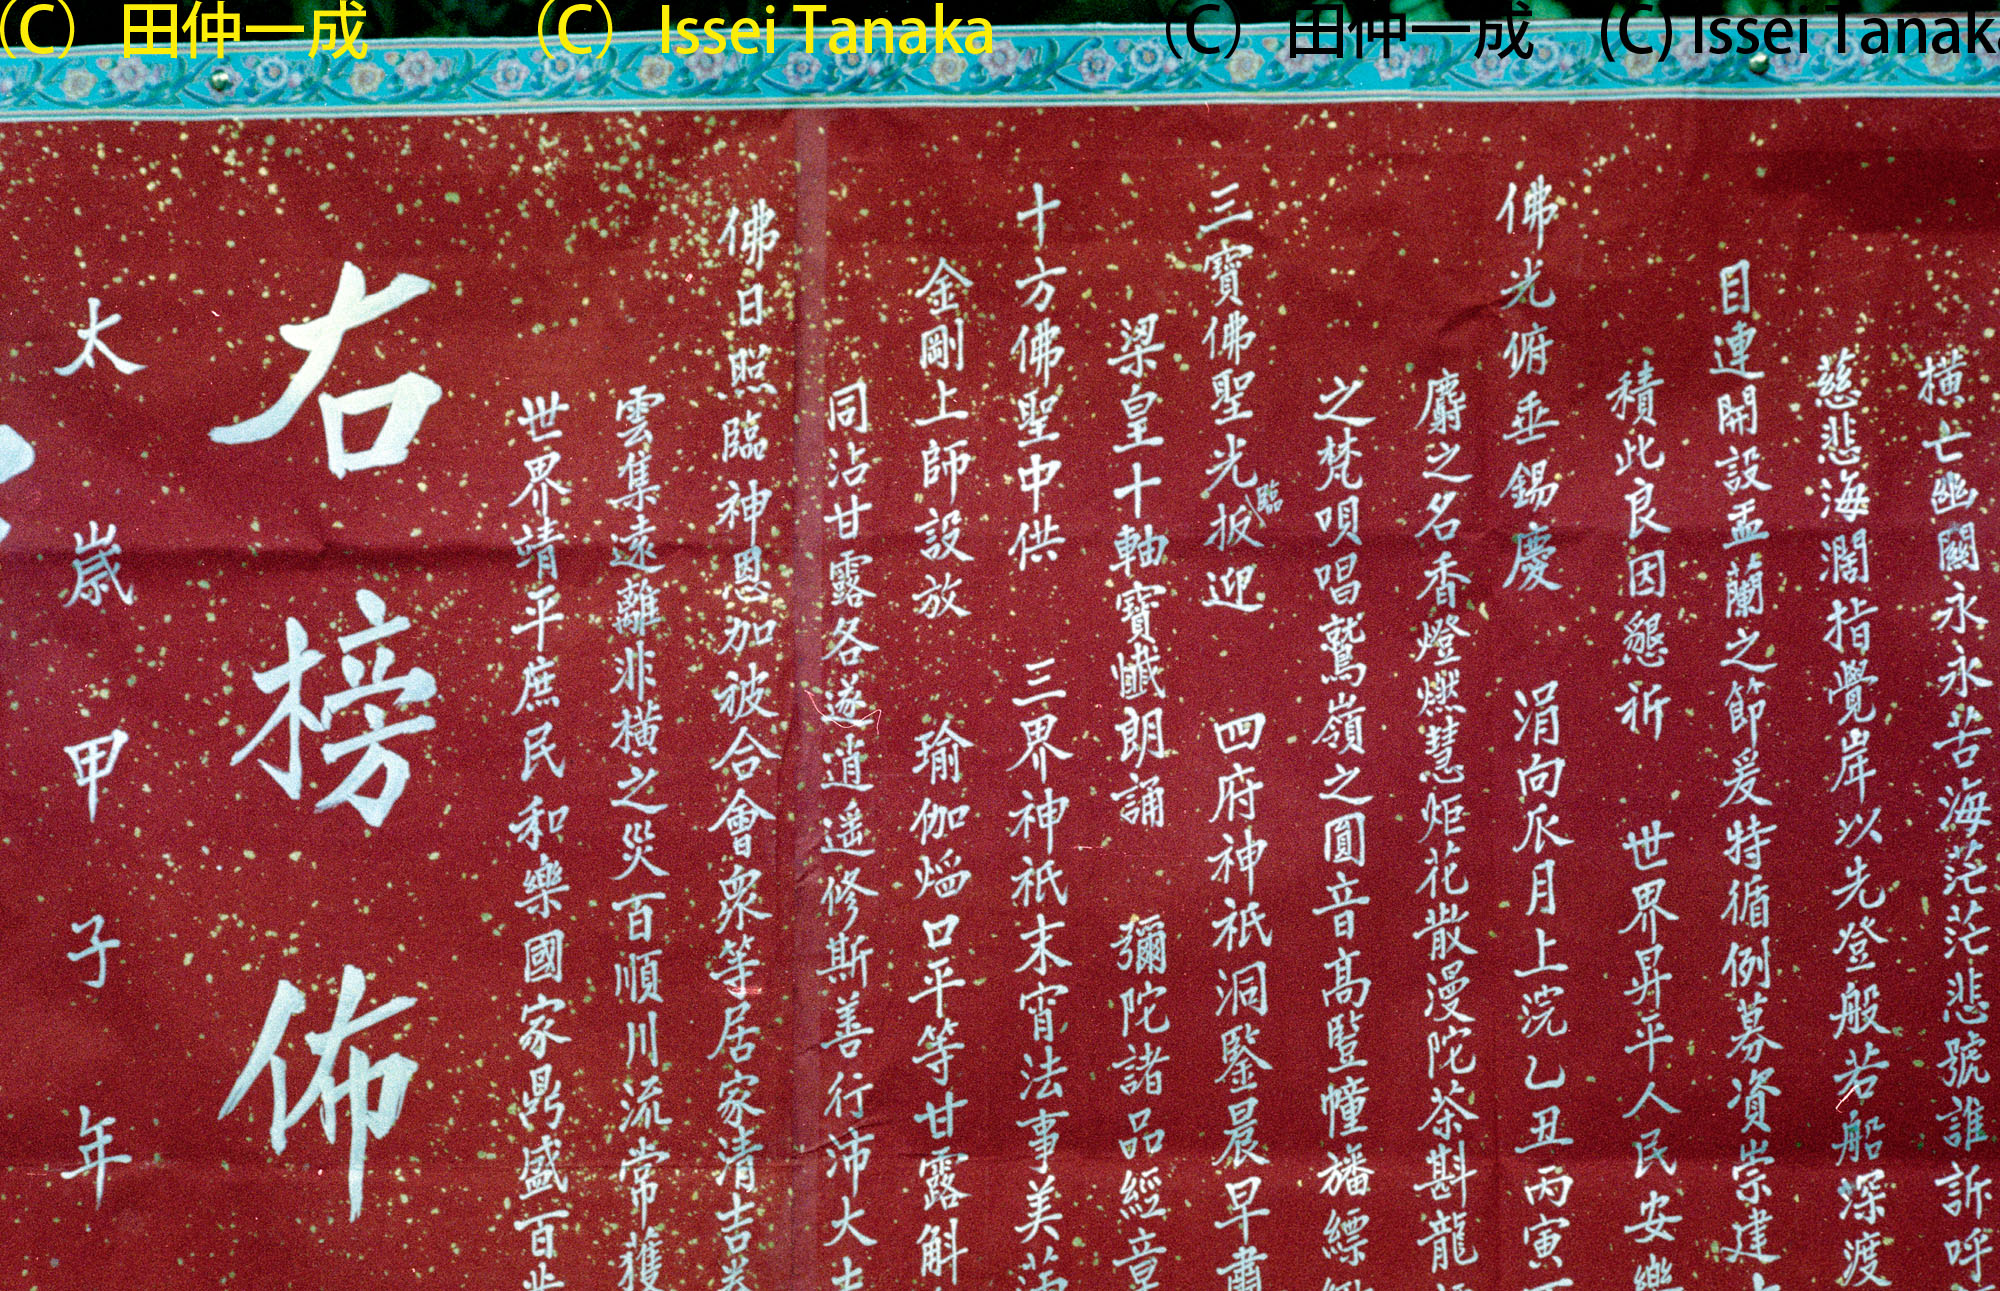 (C) 田仲一成 (C) Issei Tanaka (C) 田仲一成 (C) Issei Tanaka
橫亡幽關永永苦海茫茫悲號誰訴呼
慈悲海濶指覺岸以先登般若船深渡
目連開設盂蘭之節爰特循例募資崇建
積此良因懇祈 世界昇平人民安樂
佛光俯垂錫慶 涓向瓜月上浣乙丑丙寅
麝之名香燈燃慧炬花散漫陀茶斟龍
之梵唄唱鷲嶺之圓音高豎幢旛縹
三寶佛聖光扳臨迎 四府神祇洞鑒晨早肅
梁皇十軸寶懺朗誦 彌陀諸品經章
十方佛聖中供 三界神祇末宵法事美
金剛上師設放 瑜伽熖口平等甘露斛
同沾甘露各遂逍遥修斯善行沛大
佛日照臨神恩加被合會衆等居家清吉
雲集遠離非橫之災百順川流常獲
世界靖平庶民和樂國家鼎盛百
右榜佈
太歲甲子年